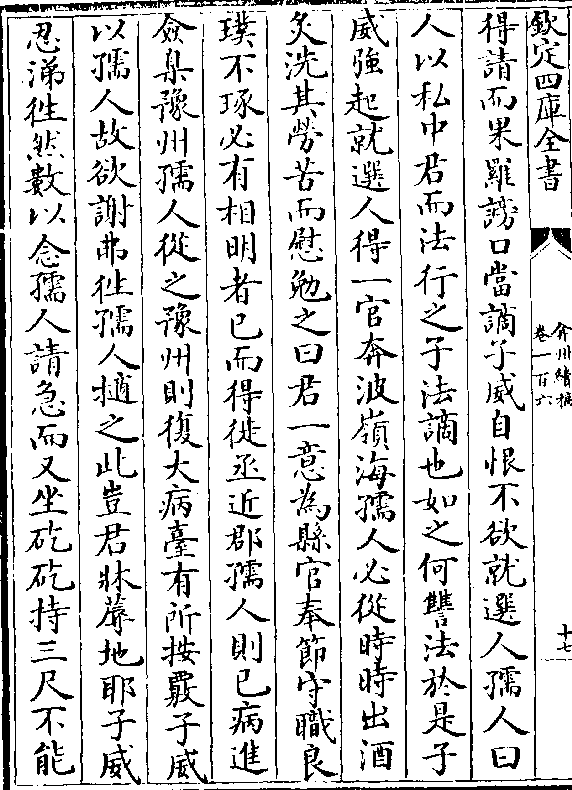 欽定四庫全書
弇州續稿
卷一百六
十七
得請而果羅謗口當謫子威自恨不欲就選人孺人曰
人以私中君而法行之子法謫也如之何讐法於是子
威強起就選人得一官奔波嶺海孺人必從時時出酒
炙洗其勞苦而慰勉之曰君一意為縣官奉節守職良
璞不琢必有相明者已而得徙丞近郡孺人則已病進
僉臬豫州孺人從之豫州則復大病臺有所按覈子威
以孺人故欲謝弗徃孺人搥之此豈君牀蓐地耶子威
忍涕徃然數以念孺人請急而又坐矻矻持三尺不能